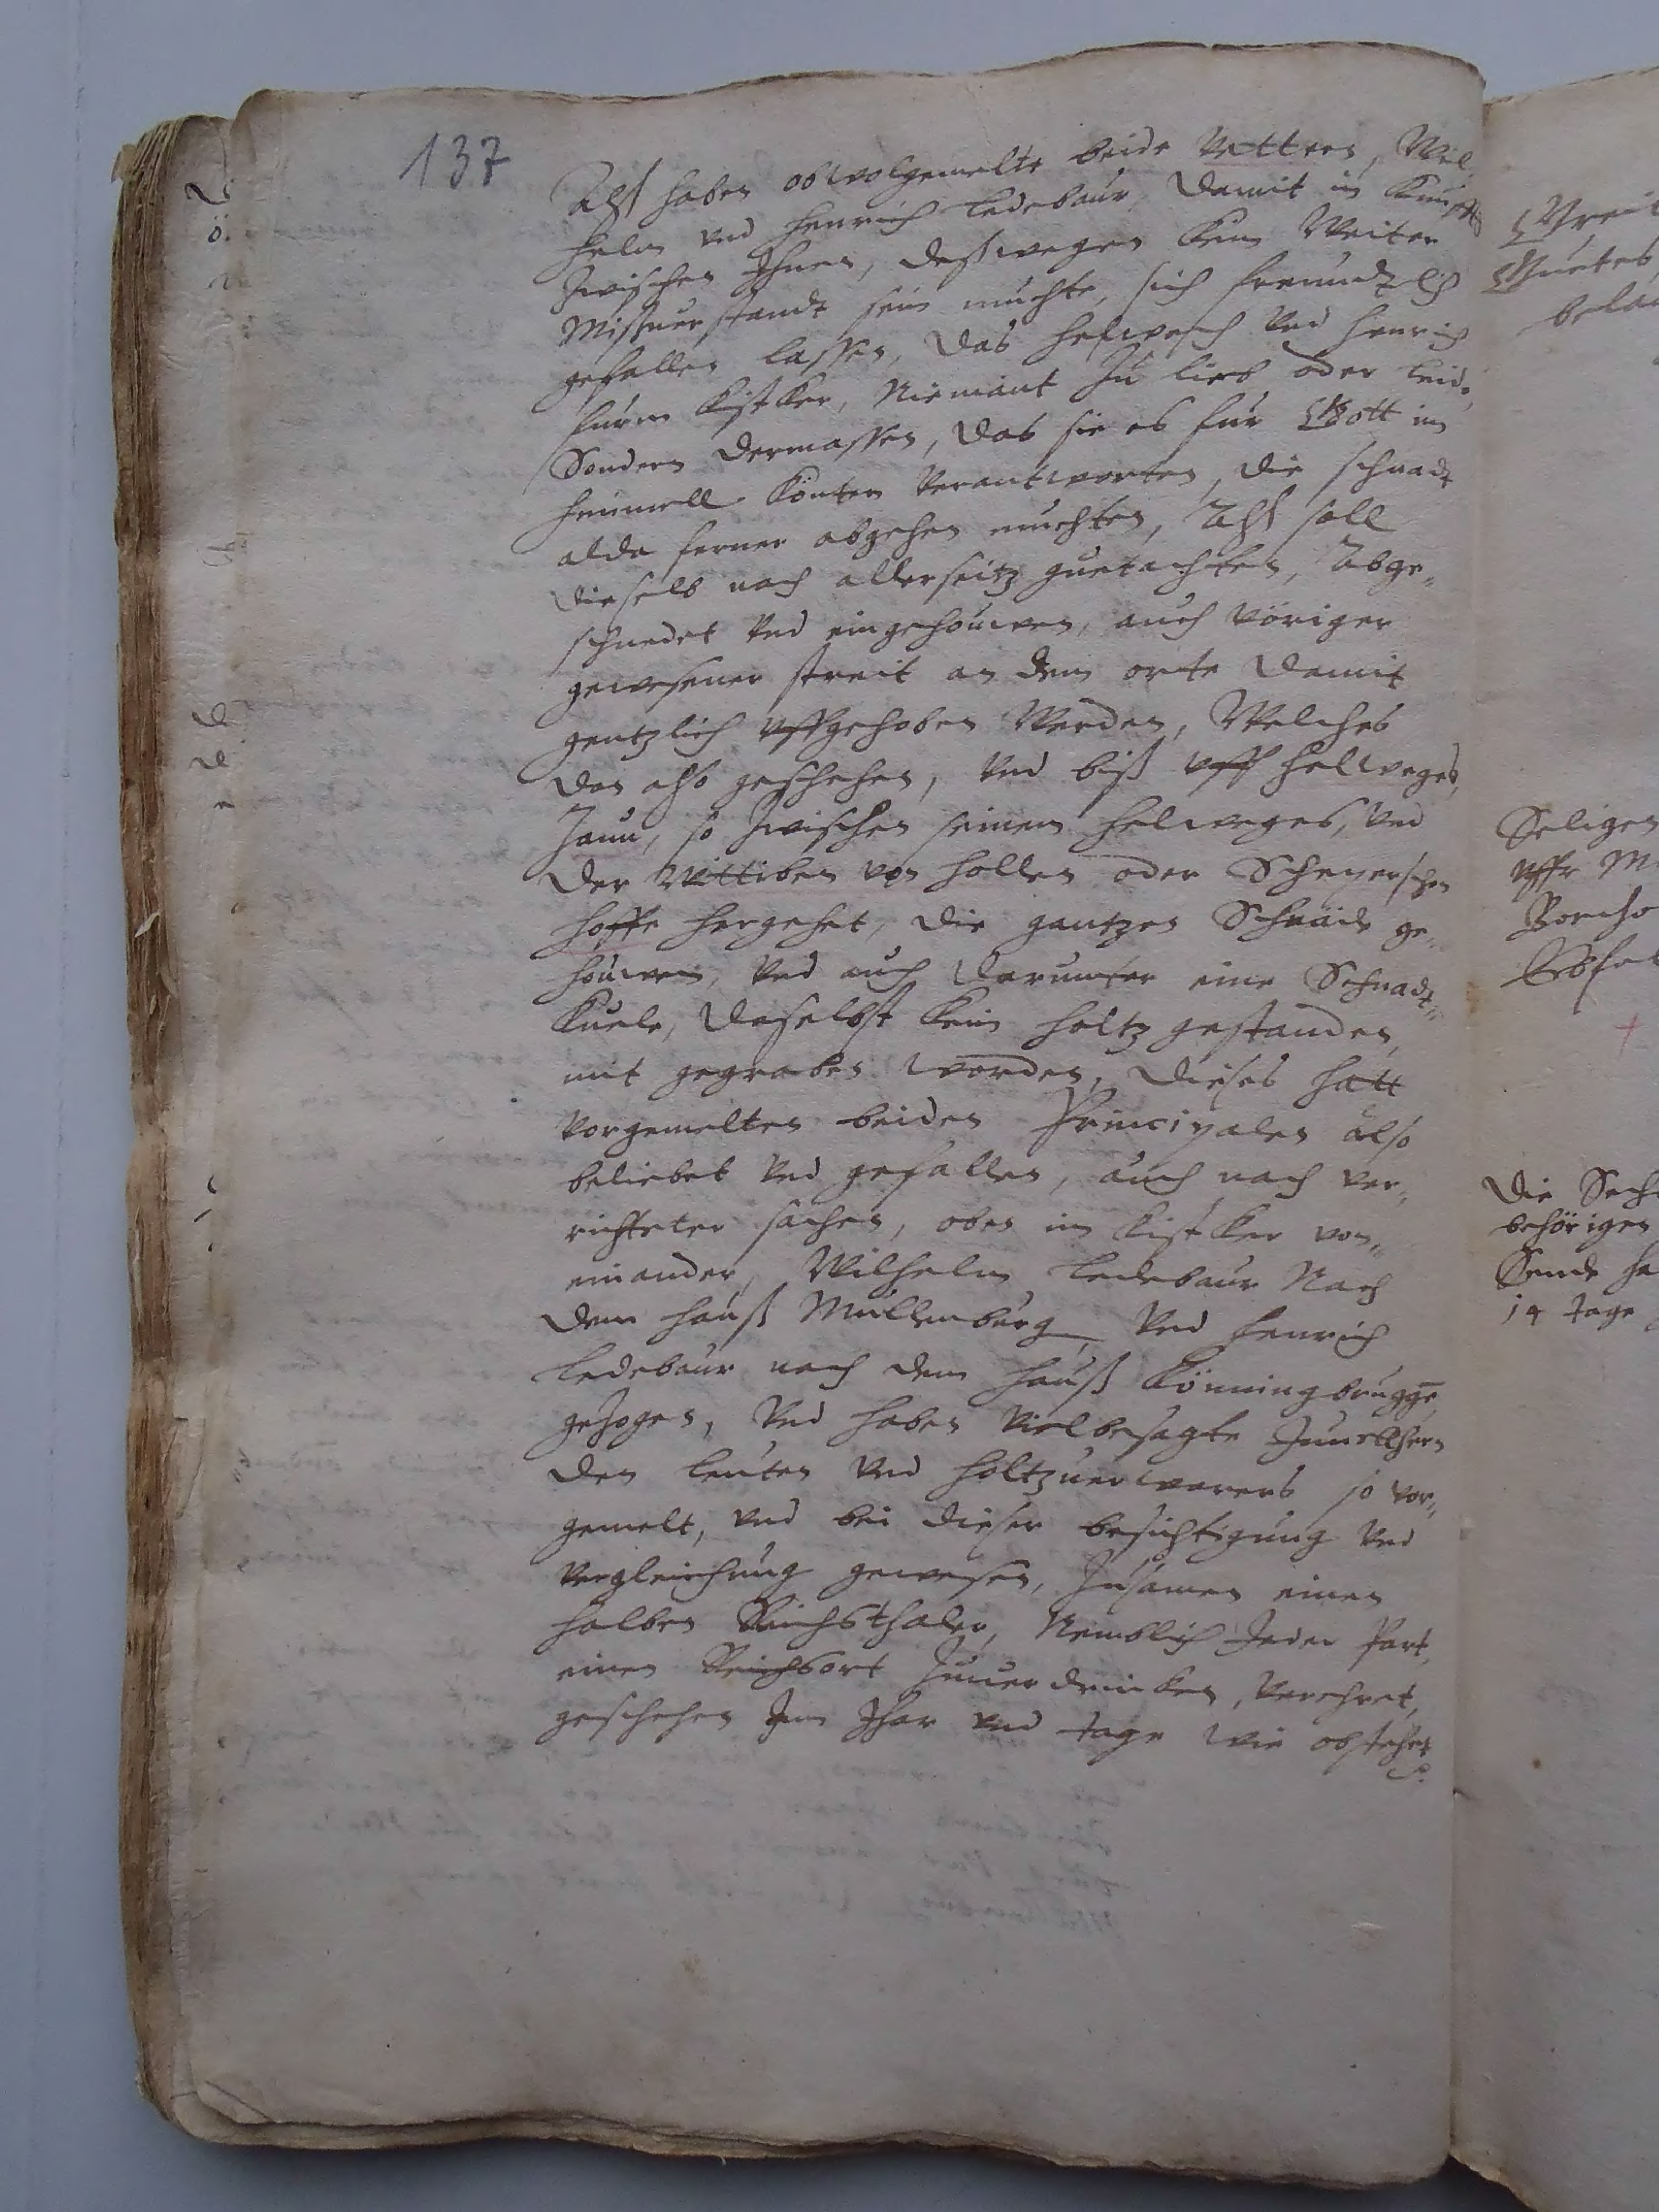 137
Alß haben obwolgemelte beide Vettern, Wil-
helm vnd Henrich Ledebaur, damit in Kunfft
zwischen Ihnen, deßwegen kein Weiter
Mißuerstandt sein muchte, sich freundtlich
gefallen lassen, das Helwech vnd Henrich
furm Kistker, Niemant zu lieb oder leide,
Sondern dermassen, das sie es fur Gott im
himmell konten verantworten, die schnadt
alda ferner abgehen muchten, Alß soll
dieselb nach allerseitz guetachten, Abge„
schnedet vnd eingehouwen, auch voriger
gewesener streit an dem orte damit
gentzlich vffgehoben Werden, Welches
dan also geschehen, vnd biß vff Helweges,
Zaun, so zwischen seinem Helweges, vnd
der Wittiben von Hollen oder Scheperschen
hoffe hergehet, die gantzen Schnäid ge„
houwen, vnd auch darunter eine Schnadt„
kuele, daselbst kein holtz gestanden,
mit gegraben worden, dieses hatt
vorgemelten beiden Principalen also
beliebet vnd gefallen, auch nach ver„
richteter sachen, oben im Kistker von„
einander, Wilhelm Ledebaur Nach
dem hauß Mullenburg, vnd Henrich
Ledebaur nach dem hauß Könningbrugge,
gezogen, vnd haben vielbesagte Junckhern
den leuten vnd holtzuerwarers so vor„
gemelt, vnd bei dieser besichtigung vnd
vergleichung gewesen, zusamen einen
halben Reichsthaler, Nemblich Jeder Part,
einen Reichsort zuuerdrincken, verehret,
geschehen Im Jhar vnd tage wie obstehet
Guetes,
bela
Seligen
vffr M
Borcho
die Sech
behörigen
Sends ha
14 tage